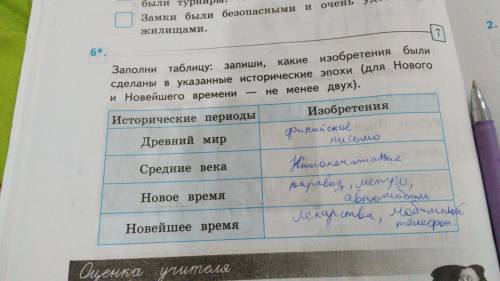 были турниры.
Замки были безопасными и очень
жилищами.
7
2.
6*.
Заполни таблицу: запиши, какие изобретения были
сделаны в указанные исторические эпохи (для Нового
и Новейшего времени — не менее двух).
Исторические периоды Изобретения
Древний мир финийское
письмо
Средние века Книгопечатание
Новое время паравоз, метро,
автомобиль
Новейшее время лекарства, мобильный
телефон.
Оценка учителя